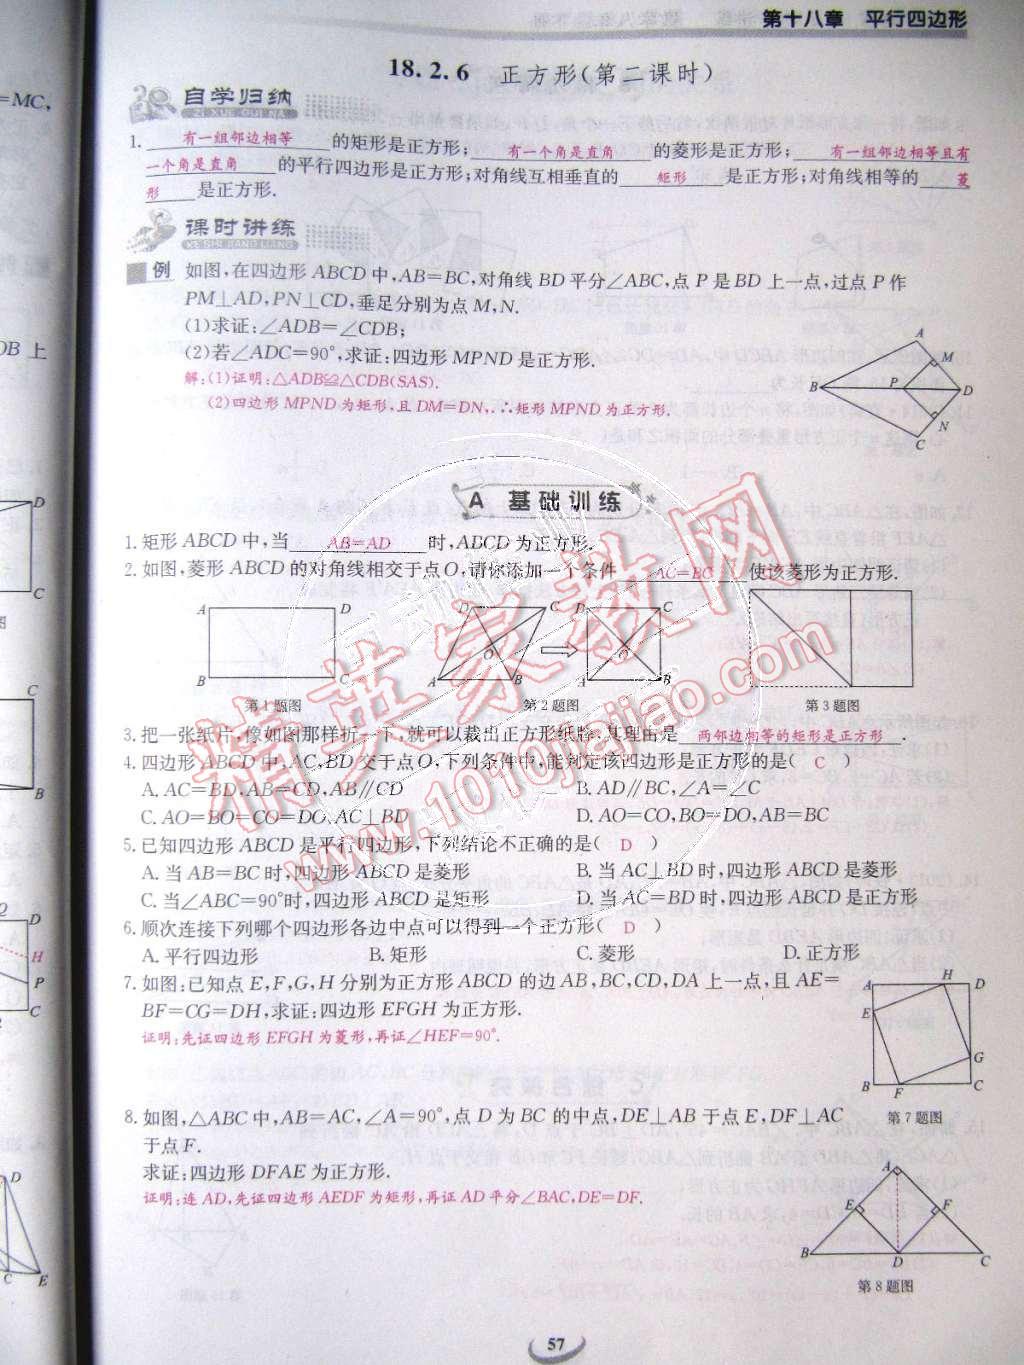 第十八章 平行四边形
18.2.6 正方形(第二课时)
=MC,
自学归纳
ZI XUE GUI NA
1. 有一组邻边相等 的矩形是正方形; 有一个角是直角 的菱形是正方形; 有一组邻边相等且有
一个角是直角 的平行四边形是正方形;对角线互相垂直的 矩形 是正方形;对角线相等的 菱
形 是正方形.
课时讲练
KE SHI JIANG LIANG
例 如图,在四边形ABCD中,AB=BC,对角线BD平分∠ABC,点P是BD上一点,过点P作
PM⊥AD,PN⊥CD,垂足分别为点M,N.
(1)求证:∠ADB=∠CDB;
OB 上
(2)若∠ADC=90°,求证:四边形MPND是正方形.
解:(1)证明:△ADB≌△CDB(SAS).
(2)四边形MPND为矩形,且DM=DN,∴矩形MPND为正方形.
A
M
B P D
N
C
A 基础训练
1.矩形ABCD中,当 AB=AD 时,ABCD为正方形.
2.如图,菱形ABCD的对角线相交于点O,请你添加一个条件 AC=BC 使该菱形为正方形.
A D D C D C
O
B C A B A B
第1题图 第2题图 第3题图
3.把一张纸片,像如图那样折一下,就可以裁出正方形纸牌,其理由是 两邻边相等的矩形是正方形 .
4.四边形ABCD中,AC,BD交于点O,下列条件中,能判定该四边形是正方形的是( C )
A.AC=BD,AB=CD,AB∥CD B.AD∥BC,∠A=∠C
C.AO=BO=CO=DO,AC⊥BD D.AO=CO,BO=DO,AB=BC
5.已知四边形ABCD是平行四边形,下列结论不正确的是( D )
A.当AB=BC时,四边形ABCD是菱形 B.当AC⊥BD时,四边形ABCD是菱形
C.当∠ABC=90°时,四边形ABCD是矩形 D.当AC=BD时,四边形ABCD是正方形
6.顺次连接下列哪个四边形各边中点可以得到一个正方形( D )
A.平行四边形 B.矩形 C.菱形 D.正方形
7.如图:已知点E,F,G,H分别为正方形ABCD的边AB,BC,CD,DA上一点,且AE=
BF=CG=DH,求证:四边形EFGH为正方形.
证明:先证四边形EFGH为菱形,再证∠HEF=90°.
A H D
E
G
B F C
第7题图
8.如图,△ABC中,AB=AC,∠A=90°,点D为BC的中点,DE⊥AB于点E,DF⊥AC
于点F.
求证:四边形DFAE为正方形.
证明:连AD,先证四边形AEDF为矩形,再证AD平分∠BAC,DE=DF.
A
E F
B D C
第8题图
57
精英家教网
www.1010jiajiao.com